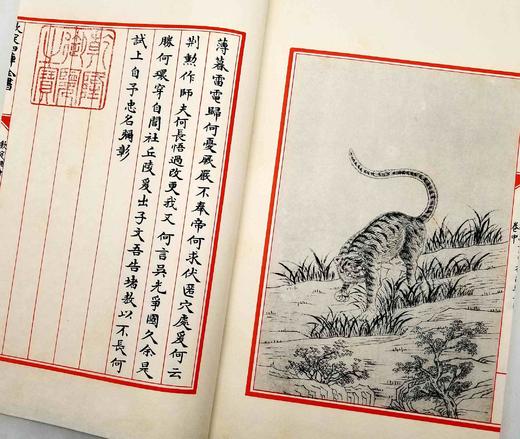 薄暮雷電歸何憂厥嚴不奉帝何求伏匿穴處爰何云
荆勲作師夫何長悟過改更我又何言吳光爭國久余是
勝何環穿自閭社丘陵爰出子文吾告堵敖以不長何
試上自予忠名彌彰
乾隆御覽之寶
欽定四庫全書
卷中